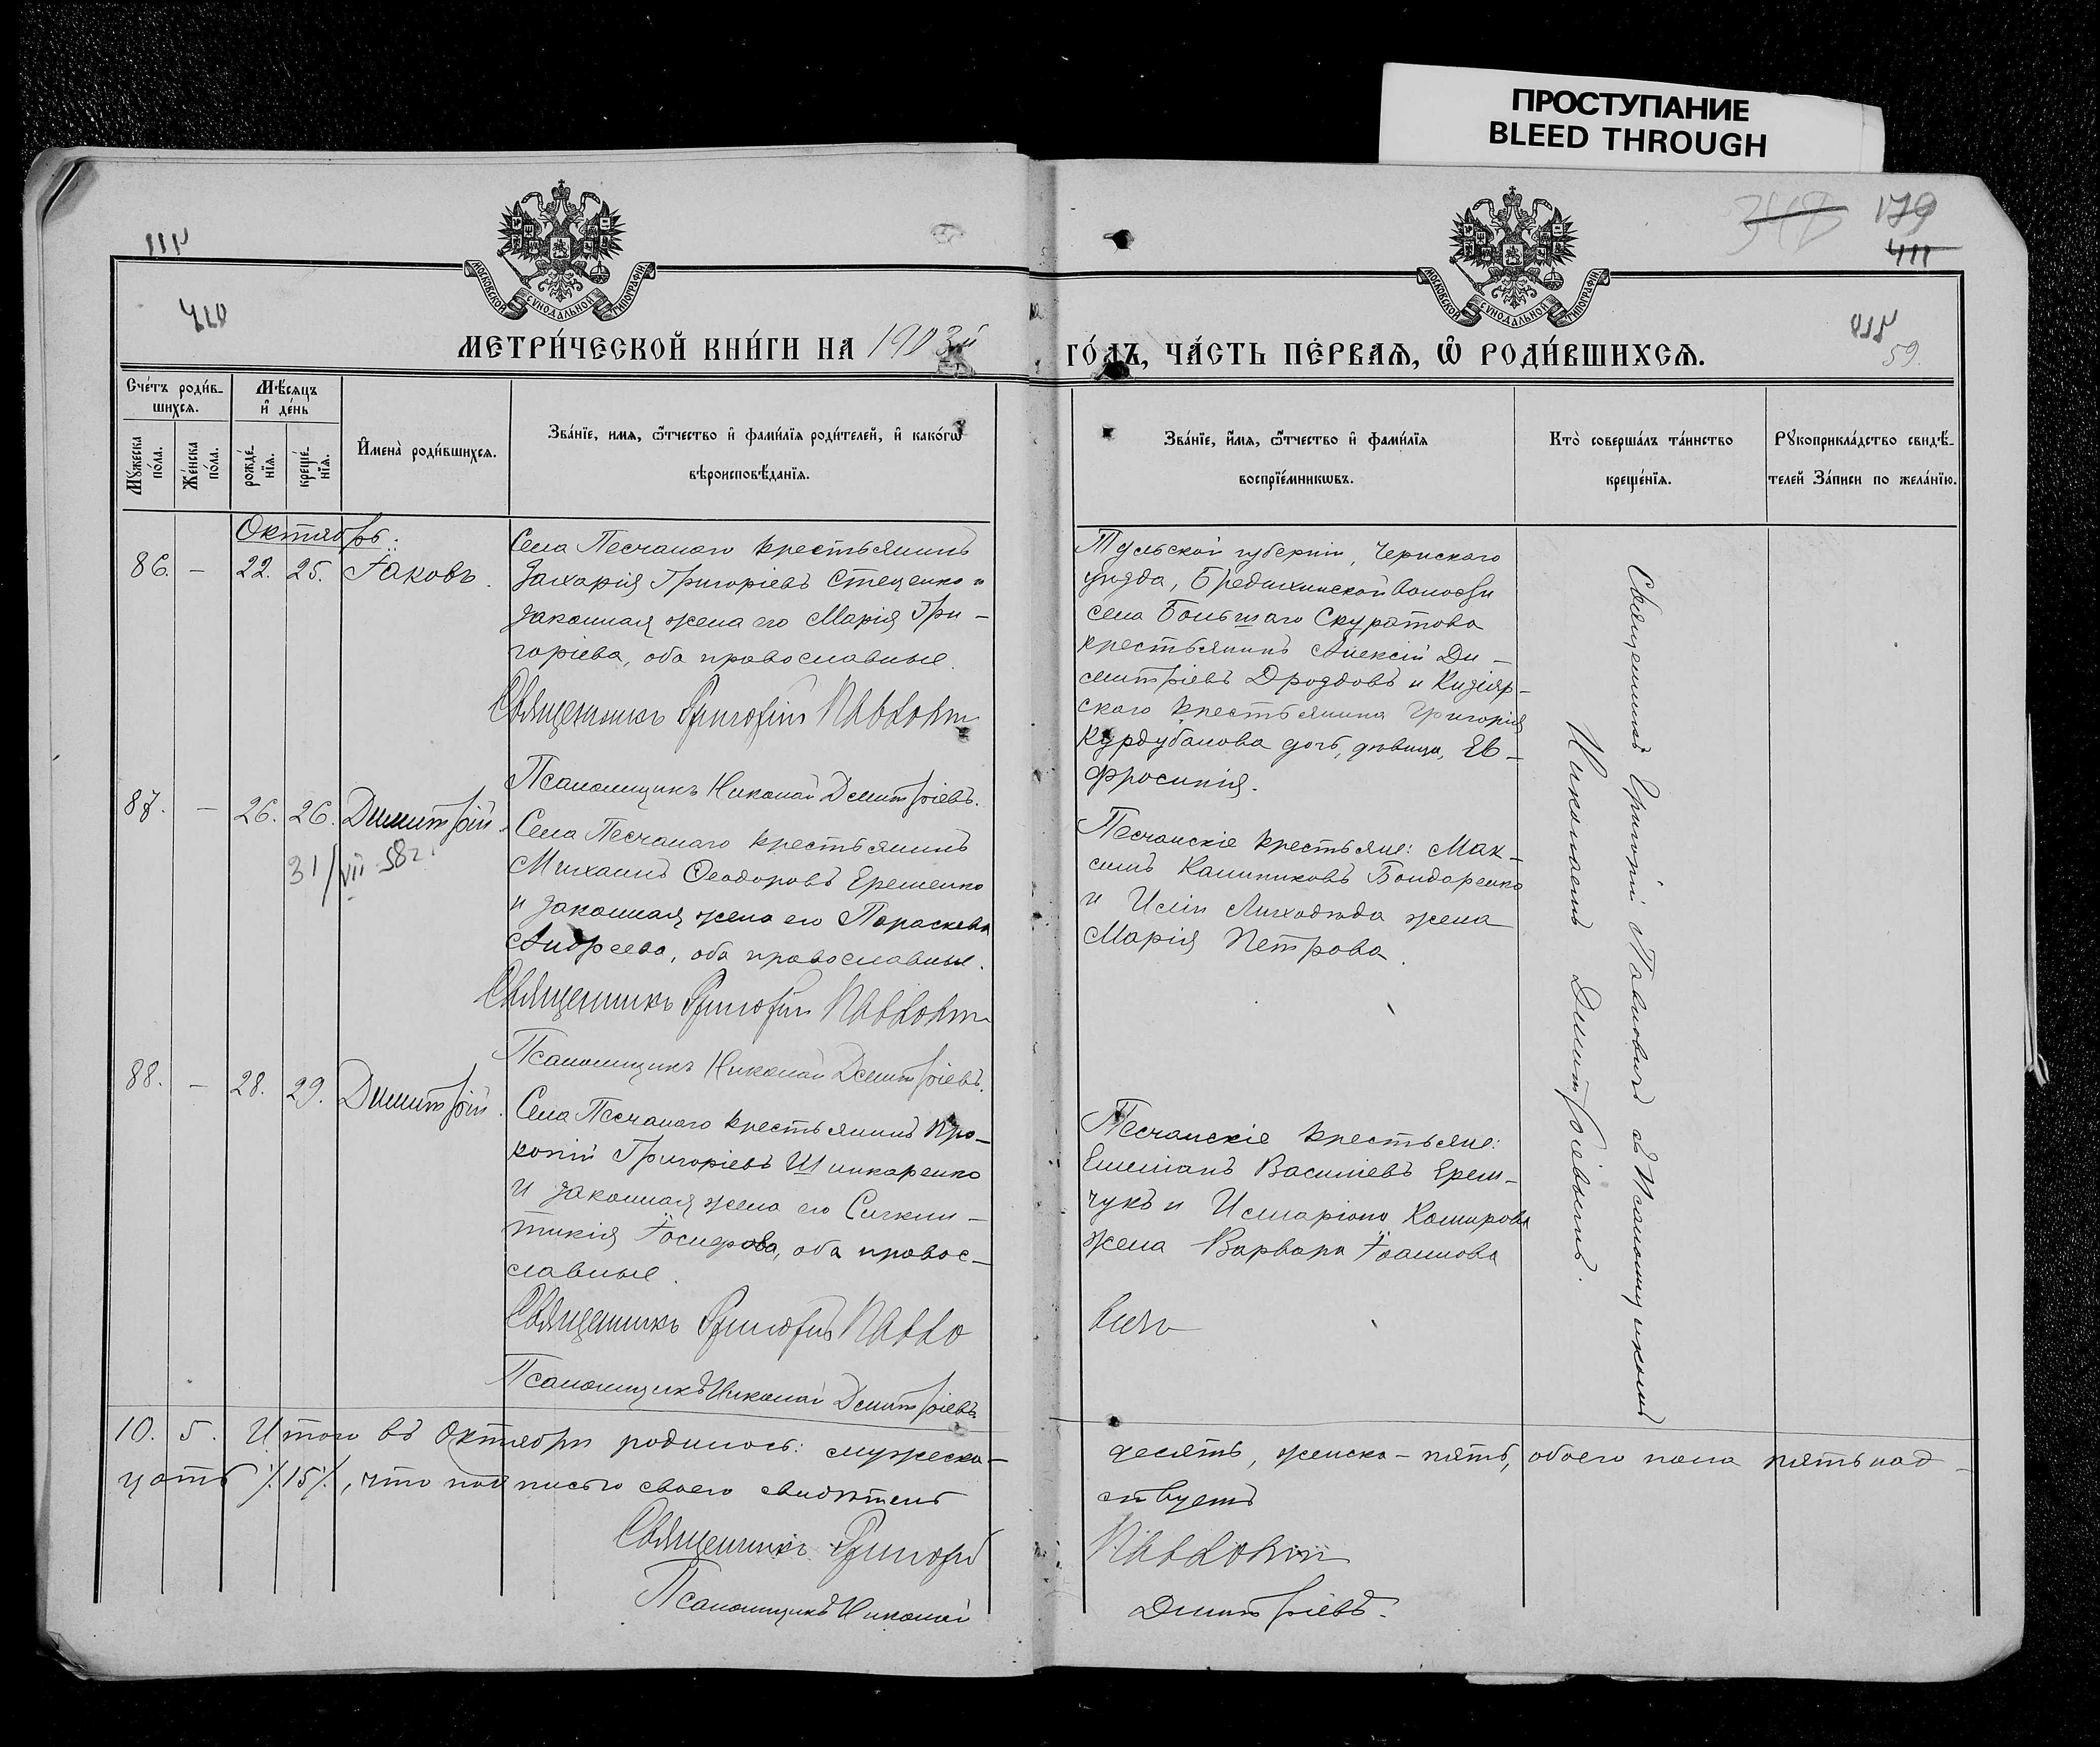 ПРОСТУПАНИЕ
BLEED THROUGH
МОСКОВСКОЙ СУНОДАЛЬНОЙ ТИПОГРАФІИ
МОСКОВСКОЙ СУНОДАЛЬНОЙ ТИПОГРАФІИ
348 179
411
410
59.
МЕТРИ́ЧЕСКОЙ КНИ́ГИ НА 1903й
ГО́ДЪ, ЧА́СТЬ ПЕ́РВАѦ, Ѿ РОДИ́ВШИХСѦ.
Сче́тъ роди́в-
шихсѧ.
Мѣ́сяцъ
и҆ де́нь
Мꙋ́жеска
по́ла.
Же́нска
по́ла.
рожде́-
нїѧ.
креще́-
нїѧ.
И҆мена̀ роди́вшихсѧ.
Зва́нїе, имѧ, ѻ҆́тчество и҆ фами́лїѧ роди́телей, и҆ како́гѡ
вѣроисповѣ́данїѧ.
Зва́нїе, и҆́мѧ, ѻ҆́тчество и҆ фами́лїѧ
воспрїе́мникѡвъ.
Кто̀ соверша́лъ та́инство
креще́нїѧ.
Рꙋкоприкла́дство свидѣ́-
телей За́писи по жела́нїю.
Октябрь.
86. — 22. 25. Іаковъ.
Села Песчанаго крестьянинъ
Захарія Григоріевъ Стеценко и
законная жена его Марія Гри-
горіева, оба православные.
Священникъ Григорій Павловичъ
Псаломщикъ Николай Димитріевъ.
Тульской губерніи, Чернскаго
уѣзда, Бредихинской волости
села Большаго Скуратова
крестьянинъ Алексій Ди-
митріевъ Дроздовъ и Кизляр-
скаго крестьянина Григорія
Курдубанова дочь, дѣвица, Ев-
фросинія.
87. — 26. 26. Димитрій.
31/VII-58г.
Села Песчанаго крестьянинъ
Михаилъ Ѳеодоровъ Еременко
и законная жена его Параскева
Андреева, оба православные.
Священникъ Григорій Павловичъ
Псаломщикъ Николай Димитріевъ.
Песчанскіе крестьяне: Мак-
симъ Калиниковъ Бондаренко
и Иліи Лиходѣда жена
Марія Петрова.
88. — 28. 29. Димитрій.
Села Песчанаго крестьянинъ Про-
копій Григоріевъ Шинкаренко
и законная жена его Сигкли-
тикія Іосифова, оба правос-
лавные.
Священникъ Григорій Павло
Псаломщикъ Николай Димитріевъ.
Песчанскіе крестьяне:
Емиліанъ Василіевъ Ерем-
чукъ и Иларіона Комирова
жена Варвара Іоаннова
вичъ
Священникъ Григорій Павловичъ съ Псаломщикомъ
Николаемъ Димитріевымъ.
10. 5. Итого въ Октябрѣ родилось: мужеска-
десять, женска - пять, обоего пола пятьнад-
цать ·/.15·/., что подписью своего свидѣтель
ствуемъ
Священникъ Григорій
Павловичъ
Псаломщикъ Николай
Димитріевъ.